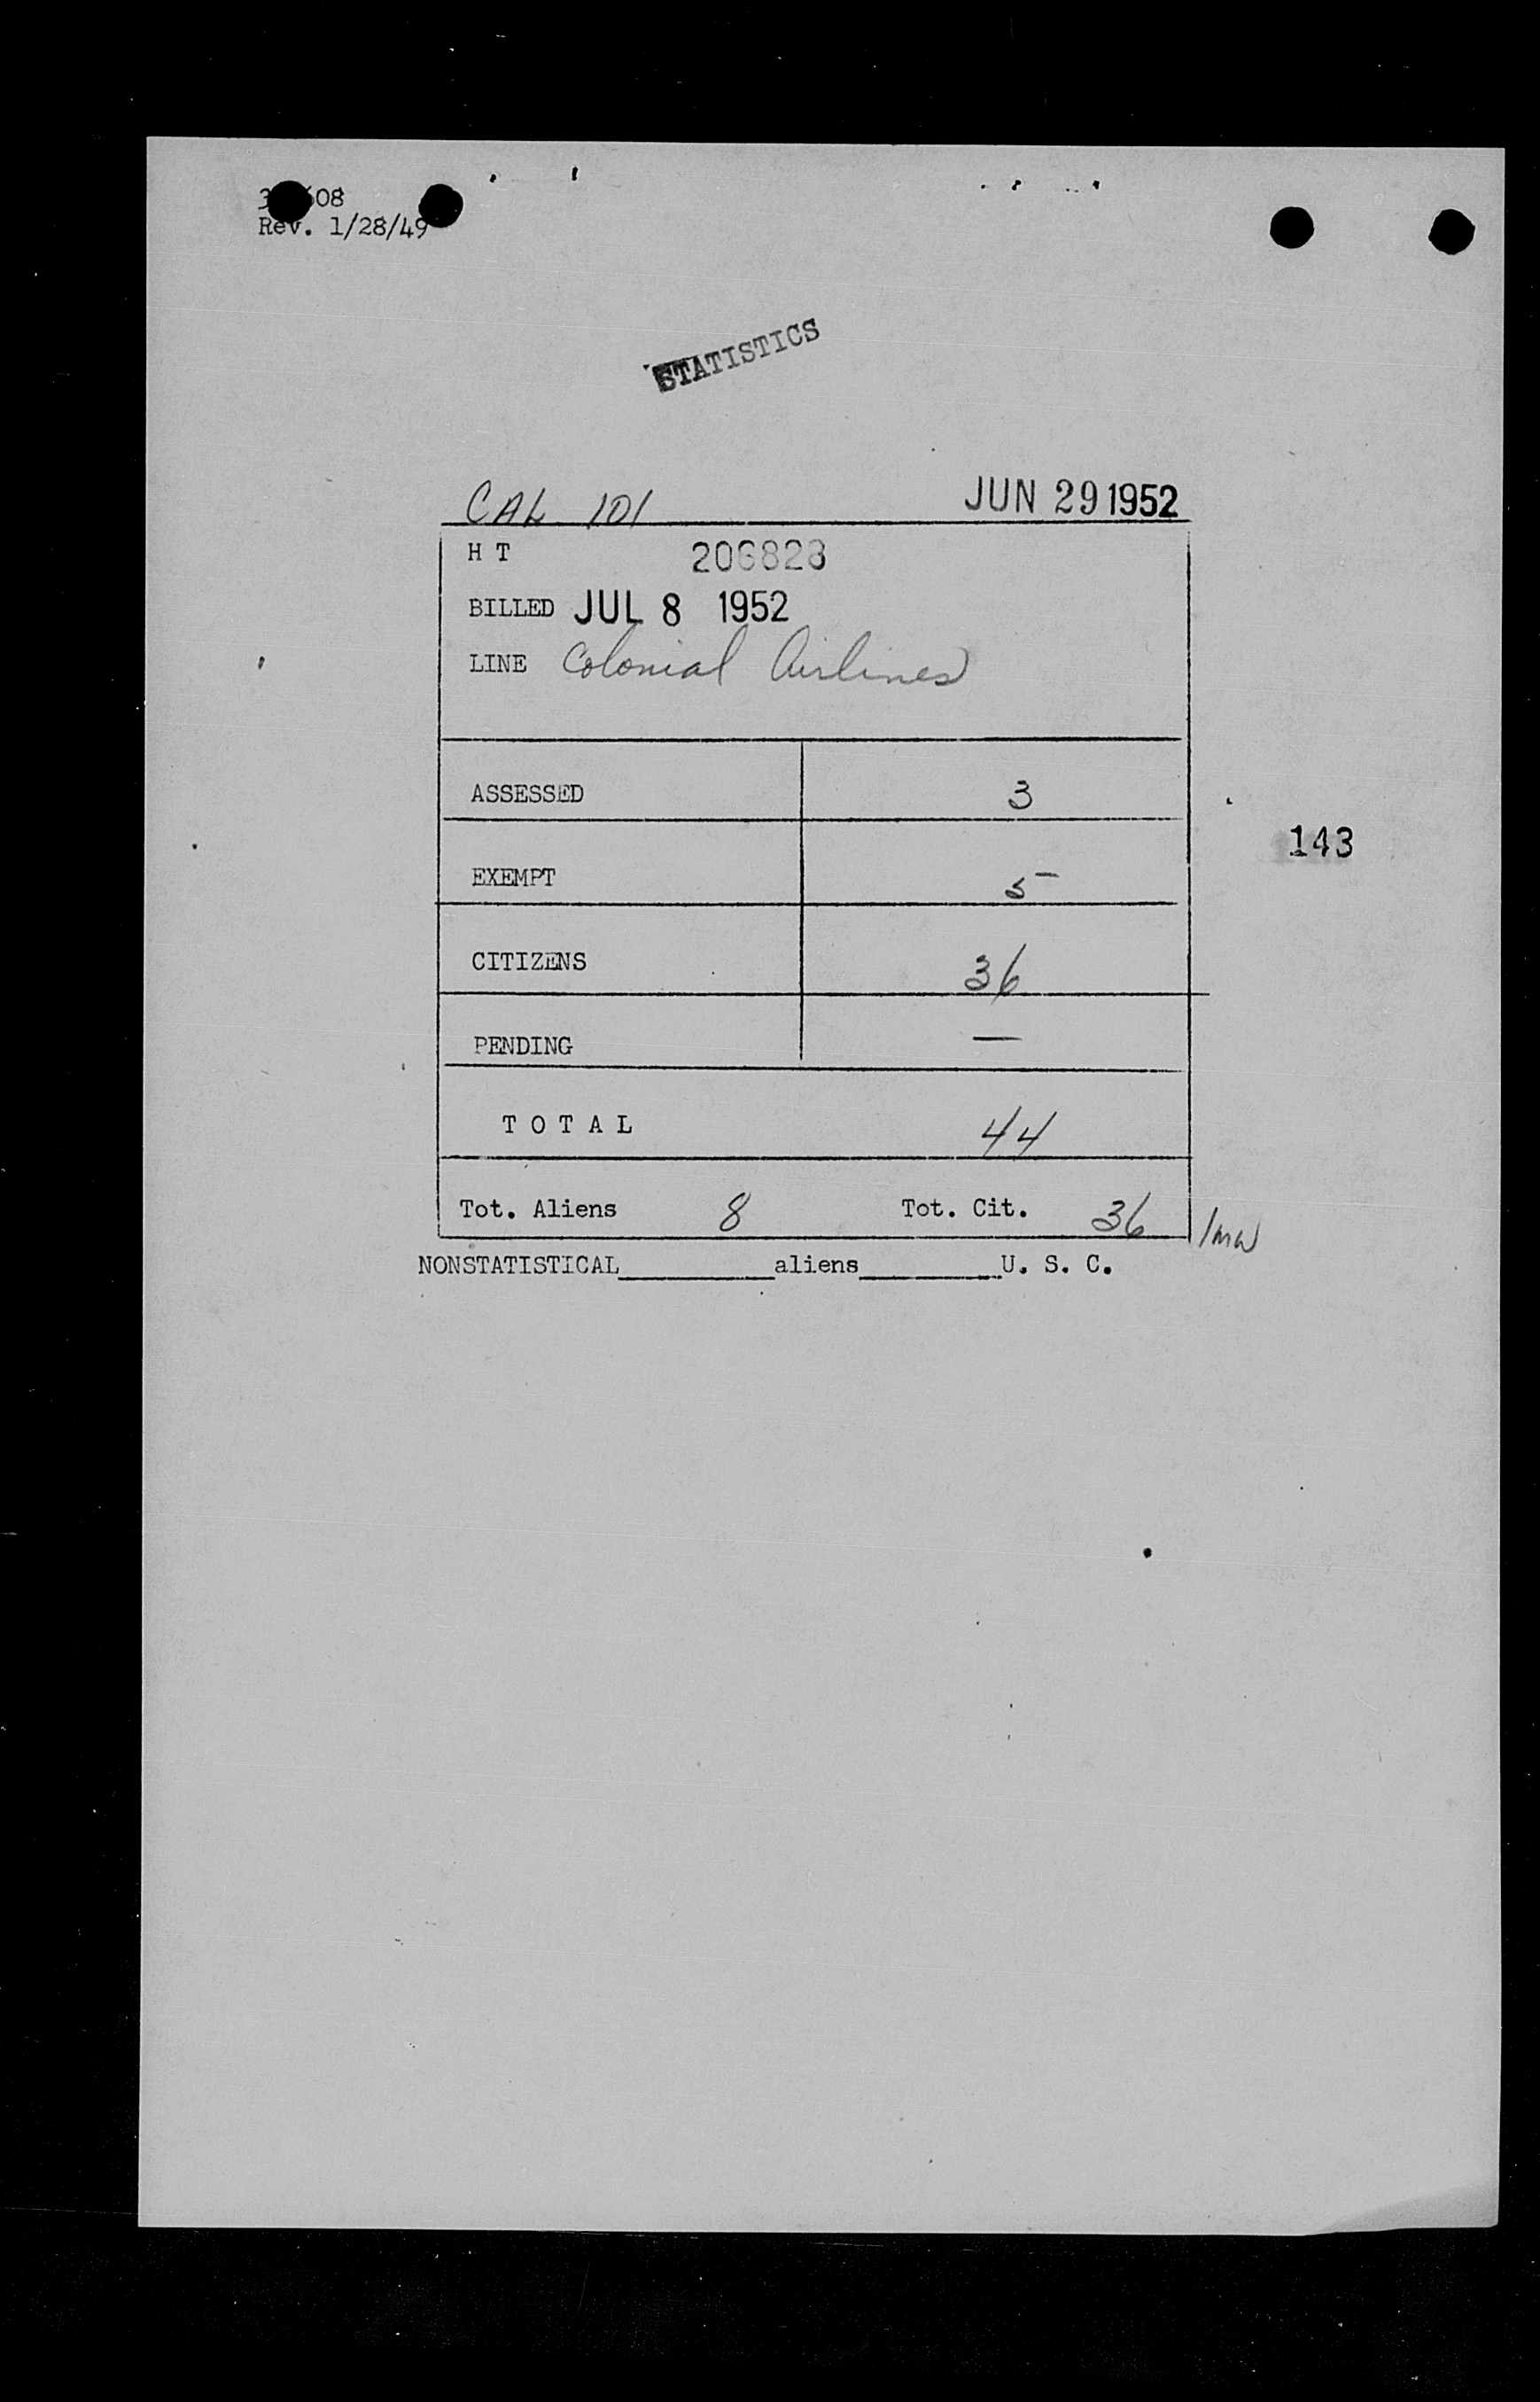 Rev. 1/28/49
STATISTICS
CAL 101 JUN 29 1952
H T 206823
BILLED JUL 8 1952
LINE Colonial Airlines
ASSESSED 3
143
EXEMPT 5
CITIZENS 36
PENDING —
T O T A L 44
Tot. Aliens 8 Tot. Cit. 36
NONSTATISTICAL__________aliens__________U. S. C.